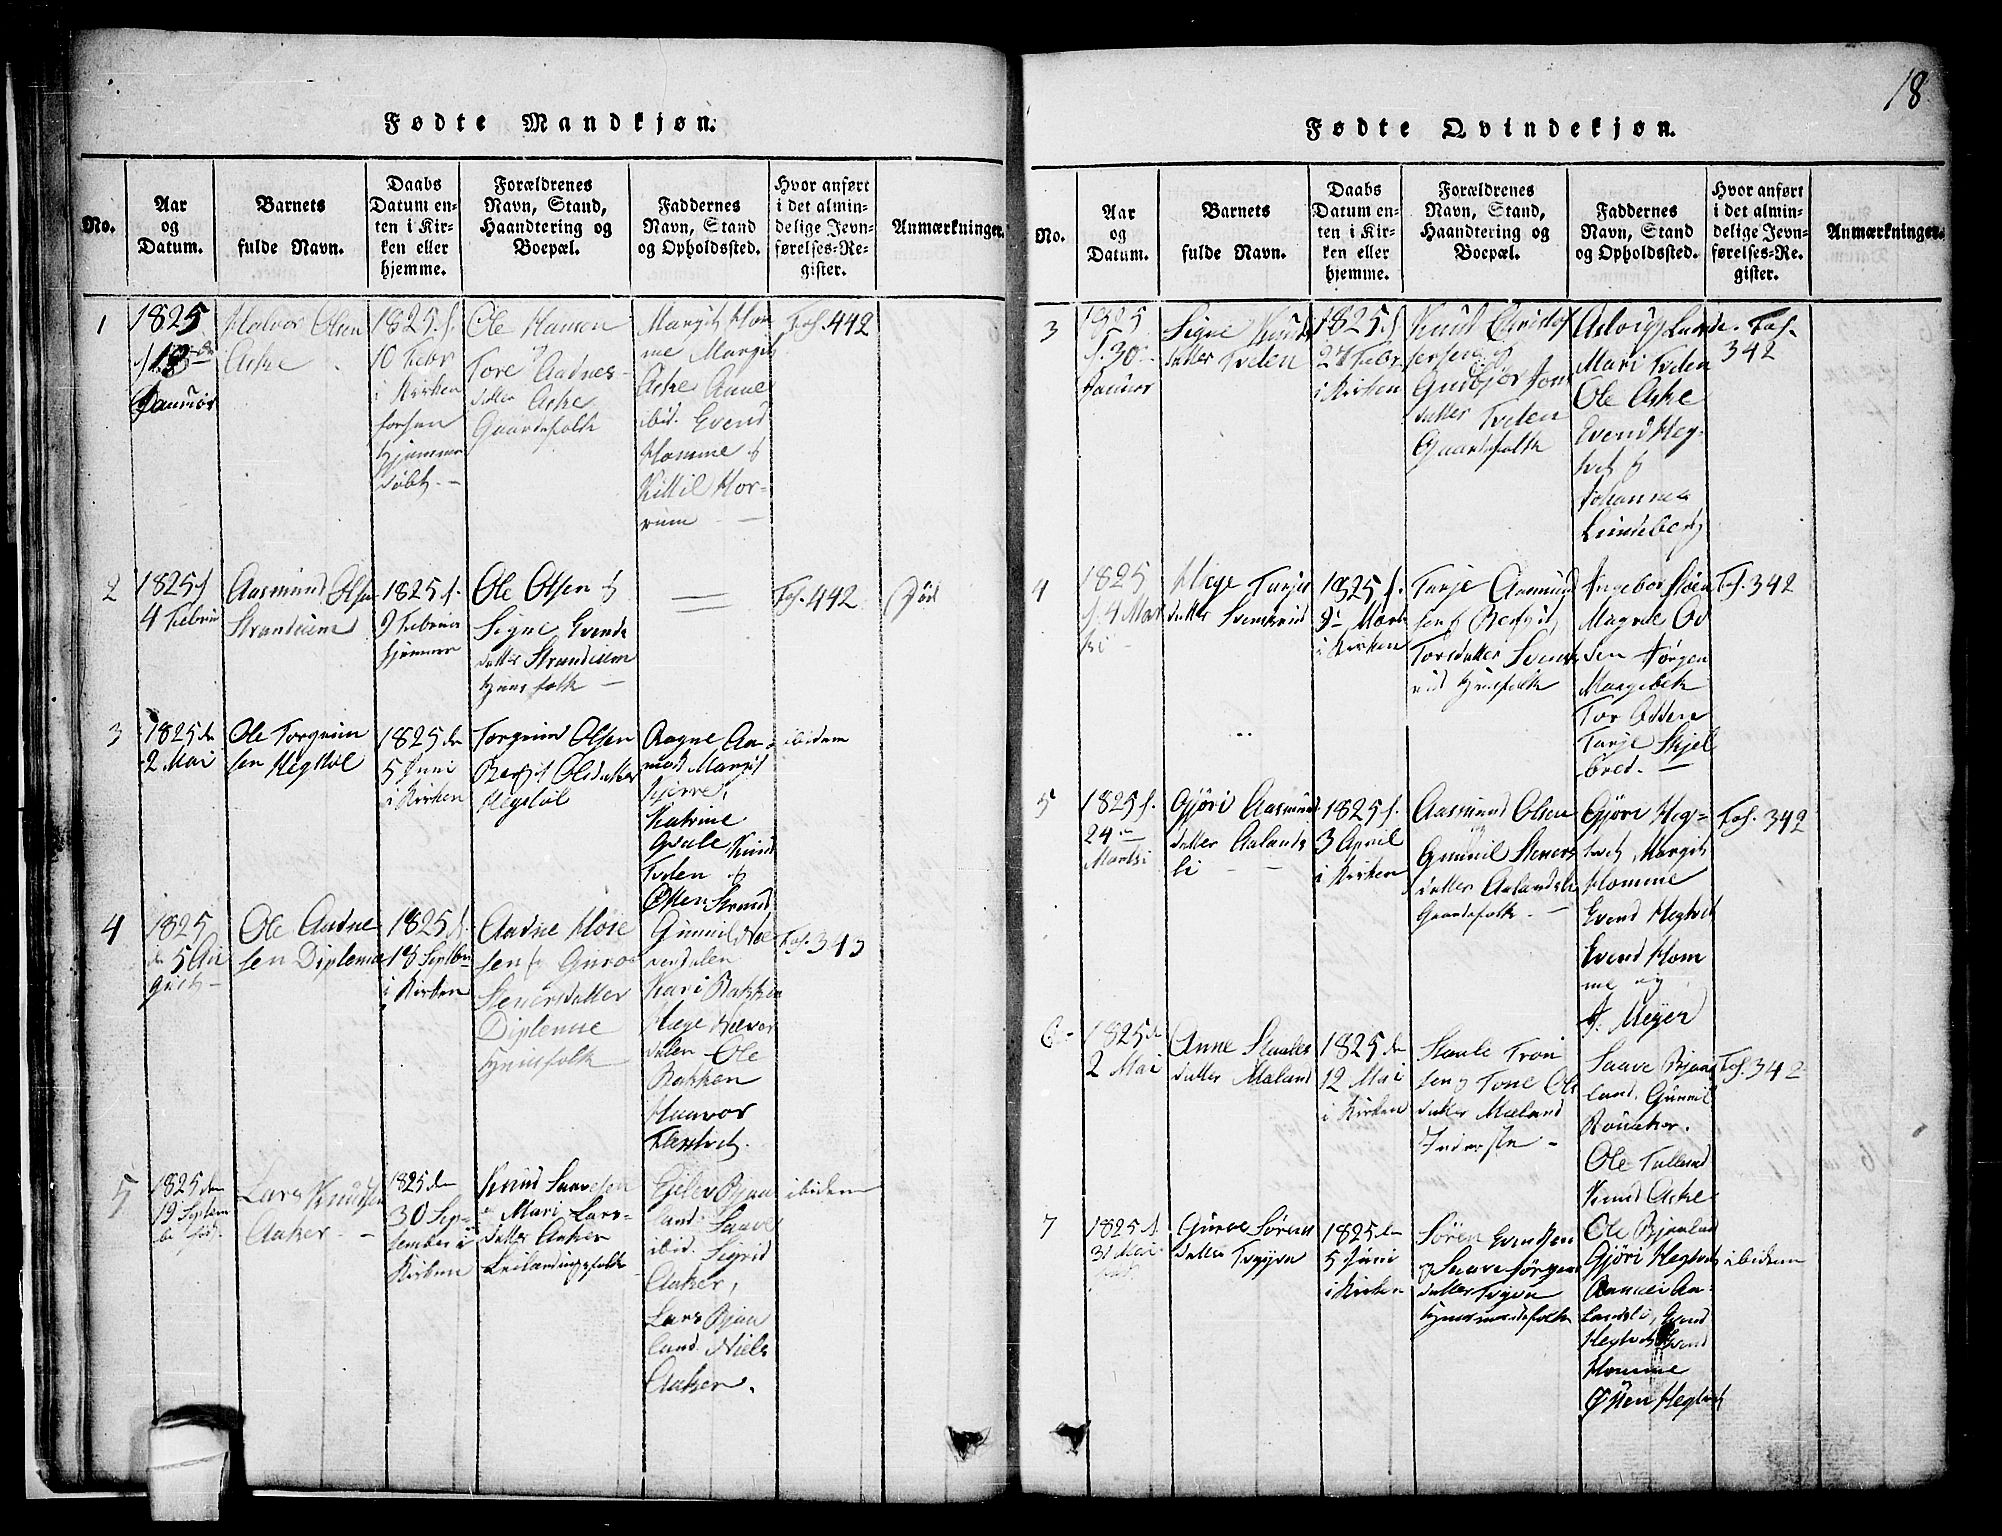 18
Fødte Mandkjøn.
No.
Aar
og
Datum.
Barnets
fulde Navn.
Daabs
Datum en-
ten i Kir-
ken eller
hjemme.
Forældrenes
Navn, Stand,
Haandtering og
Boepæl.
Faddernes
Navn, Stand
og Opholdssted.
Hvor anført
i det almin-
delige Jevn-
førelses-Re-
gister.
Anmærkninger.
1
1825
Halvor Olsen
Aske
1825 d.
10 Febr
i Kirken
Hjemme
døbt
Ole Hansen
og
Tore Aadnes-
datter Aske
Gaardsfolk
Margit Hom
me Margit
Aske Anne
ibid. Evend
Homme og
Kittil Hor-
rum
Fol. 442
2
1825 d
4 Februar
Aasmund Olsen
Strandum
1825 d.
9 Februar
hjemme
Ole Olsen og
Signe Evends
datter Strandum
Huusfolk
Fol. 442
Død
3
1825 den
2 Mai
Ole Torgrim
sen Hegstøl
1825 den
5 Juni
i Kirken
Torgrim Olsen
Bergit Olsdatter
Hegstøl
Aagne Aa-
mot Margit
Katrine
Knud
Tveten og
ibidem
4
1825
d. 5 Au
gust
Ole Aadne
sen Diplemoe
1825 d.
18 Septbr
i Kirken
Aadne
sen og Guro
Steensdatter
Diplemoe
Huusfolk
Gunnil
Kari Bakken
Hæge
dalen Ole
Bakken
Haavor
Fol. 343
5
1825 den
19 Septem
ber
Lars Knudsen
Aaker
1825 den
30 Sep-
tember i
Kirken
Knud Saavesen
Mari Lars-
datter Aaker
Leilændingsfolk
Ejlev Bjaa
land. Saave
ibid. Sigrid
Aaker,
Lars Bjaa
land. Niels
Aaker.
ibidem
Fødte Qvindekjøn.
No.
Aar
og
Datum.
Barnets
fulde Navn.
Daabs
Datum en-
ten i Kir-
ken eller
hjemme.
Forældrenes
Navn, Stand,
Haandtering og
Boepæl.
Faddernes
Navn, Stand
og Opholdssted.
Hvor anført
i det almin-
delige Jevn-
førelses-Re-
gister.
Anmærkninger.
3
1825
d. 30
Januar
Signe Knuds
datter Tveten
1825 d
27 Febr.
i Kirken
Knud
Gudbjør Jons
datter Tveten
Gaardsfolk
Asloug Lunde
Mari Tveten
Ole Aske
Evend Heg-
tvet og
Johannes
Lundeberg
Fol.
342
4
1825
d. 4 Mar
tsi
Hæge Tarje
datter Svensrud
1825 d.
i Kirken
Tarje Aasmund
sen og Bergit
Torsdatter Svens
rud Huusfolk
Ingebor
sen Jørgen
Tor Ossen
Tarje Skjel
bred.
Fol. 342
5
1825 d.
24
Martsi
Gjøri Aasmunds
datter Aalands
li
1825 d.
3 April
i Kirken
Aasmund Olsen
og
Gunnil Steners
datter Aalandsli
Gaardsfolk
Gjøri Heg-
tvet Margit
Homme
Evend Hegtvet
Evend Hom
me og
J. Meyer
Fol. 342
6
1825 den
2 Mai
Anne Staales
datter Maland
1825 den
12 Mai
i Kirken
Staale Tron
sen og Tone Ols
datter Mæland
Inderste
Saave Bjaa
land. Gunnil
Ole Tulland
Knud Aske
Fol. 342
7
1825 d.
31 Mai
Guroe Sørens
datter
1825 den
5 Juni
i Kirken
Søren Evendsen
og Saave Jørgens
datter
Huusmandsfolk
Ole Bjaaland
Gjøri Hegtvet
Aa-
landsli, Evend
Hegtvet Evend
Homme
Østen Hegtvet
ibidem